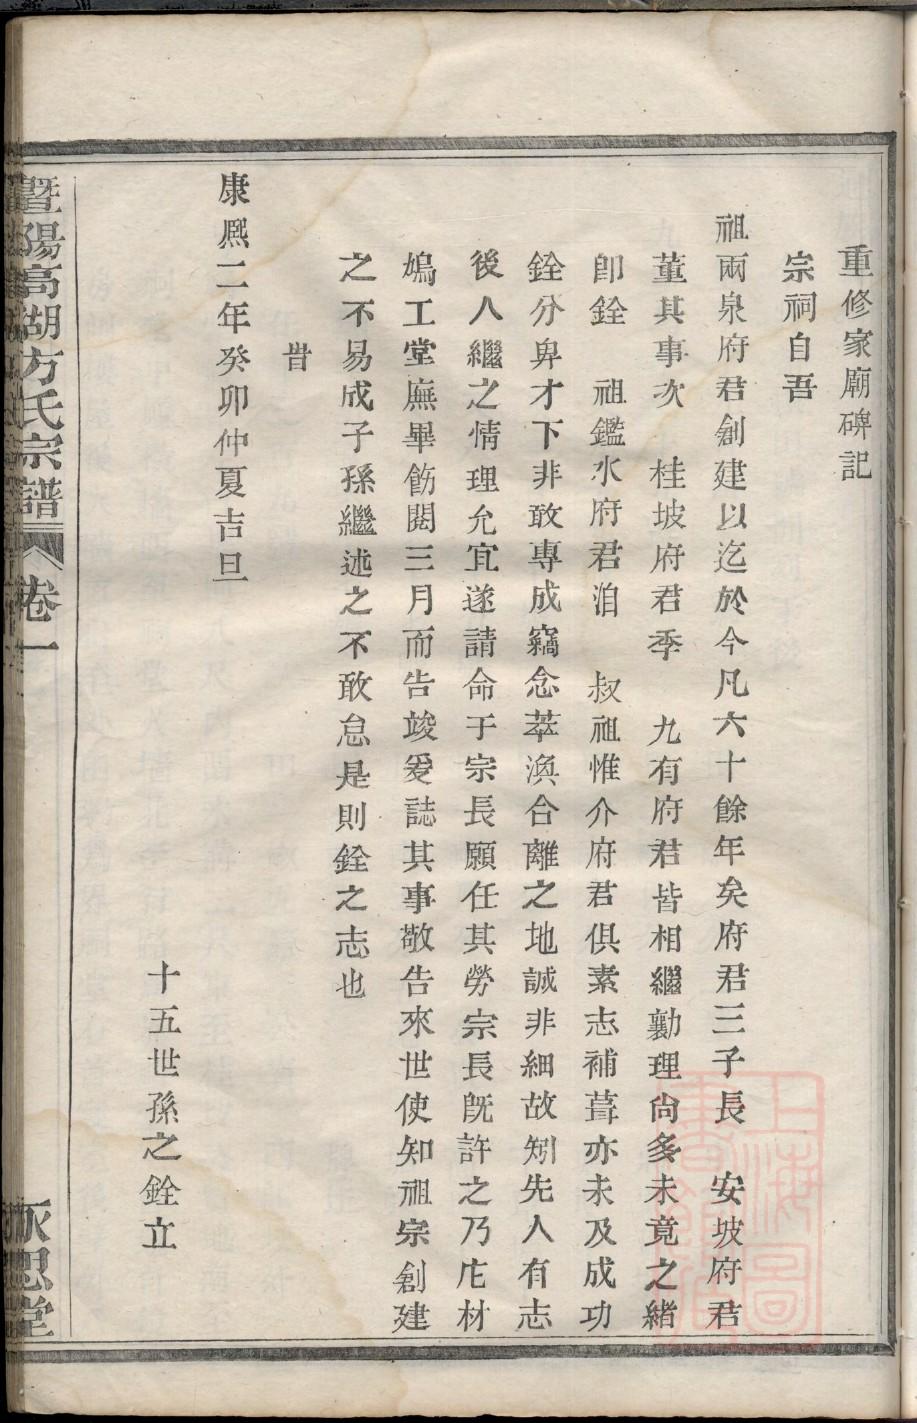 重修家廟碑記
宗祠自吾
祖兩泉府君創建以迄於今凡六十餘年矣府君三子長　安坡府君
董其事次　桂坡府君季　九有府君皆相繼勷理尙多未竟之緒
卽銓　祖鑑水府君洎　叔祖惟介府君俱素志補葺亦未及成功
銓分卑才下非敢專成竊念萃渙合離之地誠非細故矧先人有志
後人繼之情理允宜遂請命于宗長願任其勞宗長旣許之乃庀材
鳩工堂廡畢飭閱三月而告竣爰誌其事敬告來世使知祖宗創建
之不易成子孫繼述之不敢怠是則銓之志也
旹
康熙二年癸卯仲夏吉旦
十五世孫之銓立
暨陽高湖方氏宗譜　卷一　永思堂
上海圖書館藏